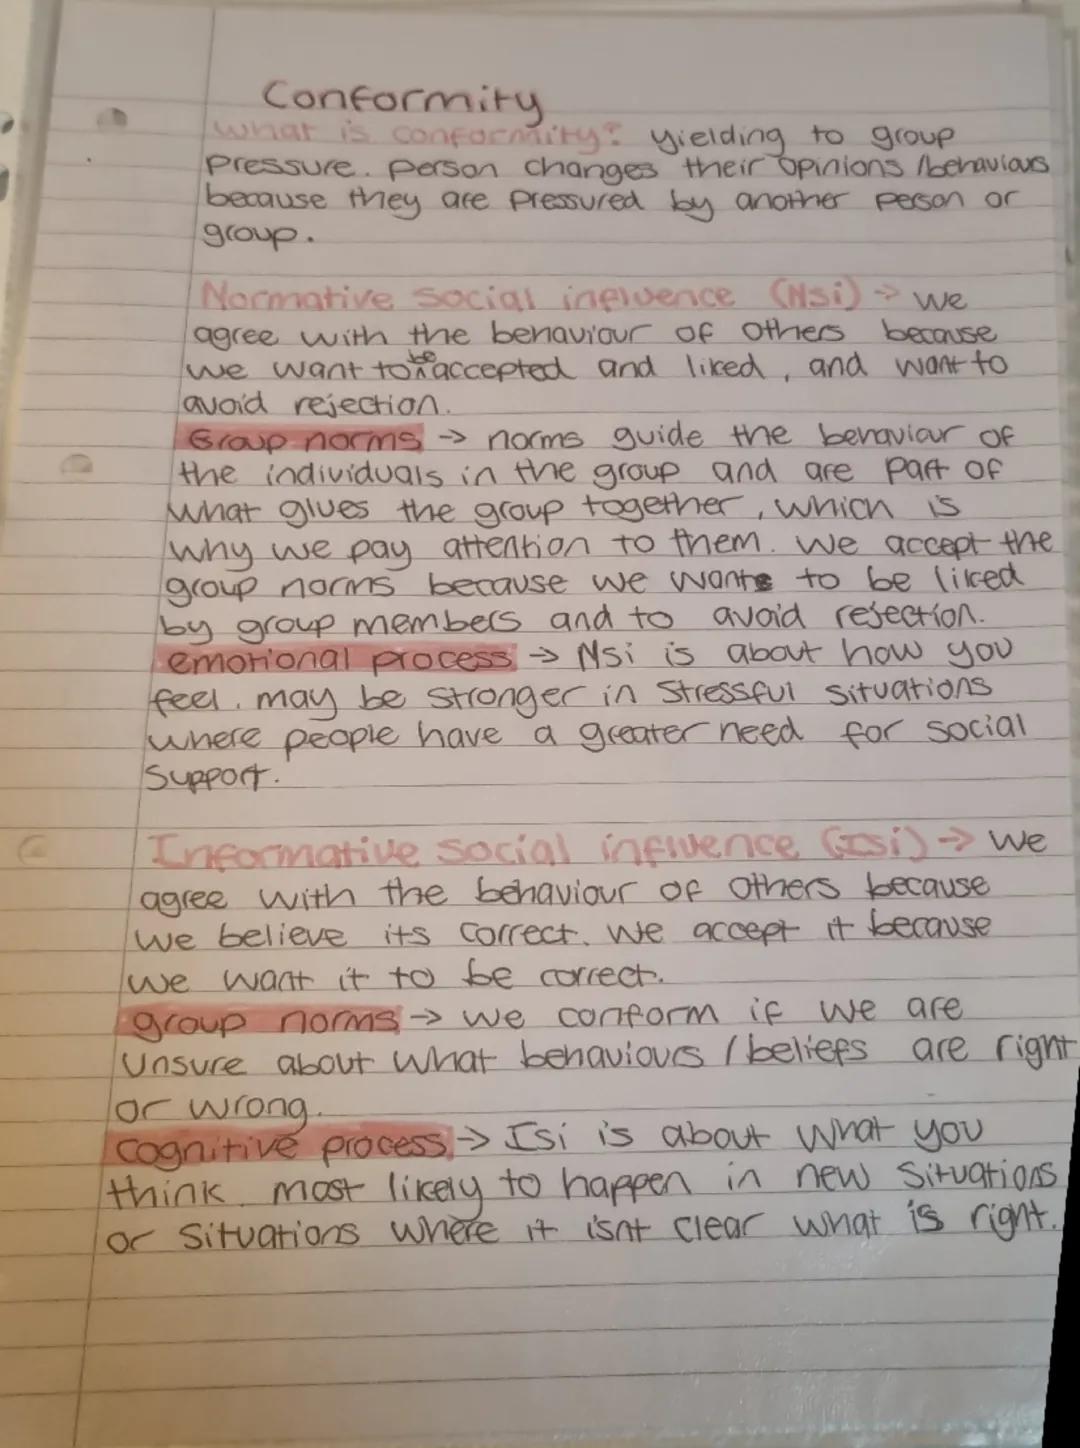 Conformity
What is conformity? yielding to group
pressure. person changes their opinions /behaviours
because they are pressured by another person or
group.
Normative social influence (Nsi) → we
agree with the behaviour of others because
we want to be accepted and liked, and want to
avoid rejection.
Group norms → norms guide the behaviour of
the individuals in the group and are part of
what glues the group together, which is
why we pay attention to them. We accept the
group norms because we want to be liked
by group members and to avoid rejection.
emotional process → Nsi is about how you
feel. may be stronger in stressful situations
where people have a greater need for social
support.
Informative social influence (Isi) → we
agree with the behaviour of others because
we believe its correct. We accept it because
we want it to be correct.
group norms → we conform if we are
unsure about what behaviours / beliefs are right
or wrong.
cognitive process → Isi is about what you
think. most likely to happen in new situations
or situations where it isnt clear what is right.